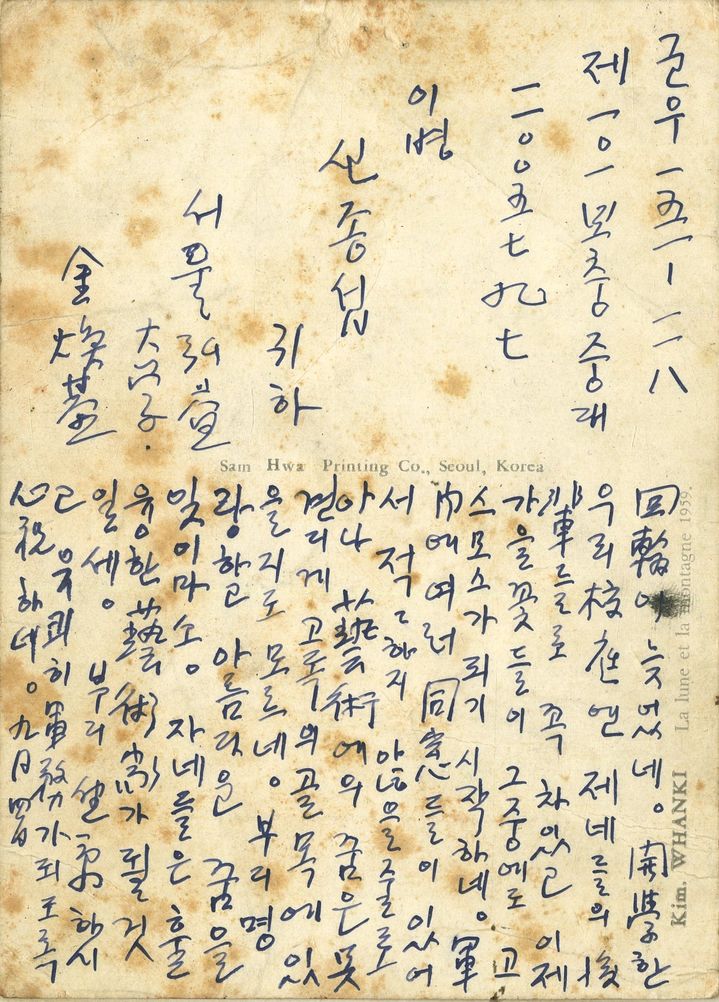 군우一五一-二八
제一〇一보충중대
二〇〇五七九七
이병
신종섭
귀하
서울弘益
大学.
金煥基
Sam Hwa Printing Co., Seoul, Korea
回翰이 늦었네。 開學한
우리 校庭엔 제네들의 後
輩들로 꼭 차있고 이제
가을꽃들이 그중에도 고
스모스가 피기 시작하네。軍
內에 여러 同窓들이 있어
서 적〻하지 않을줄로
아나 藝術에의 꿈은 못
견디게 고독의 골목에 있
을지도 모르네。부디 명
랑하고 아름다운 꿈을
잊이마소。 자네들은 훌
융한 藝術家가 될것
일세。 부디 健康하시
고 유쾌히 軍務가 되도록
心祝하네。九月四日
Kim. WHANKI La lune et la montagne 1959.